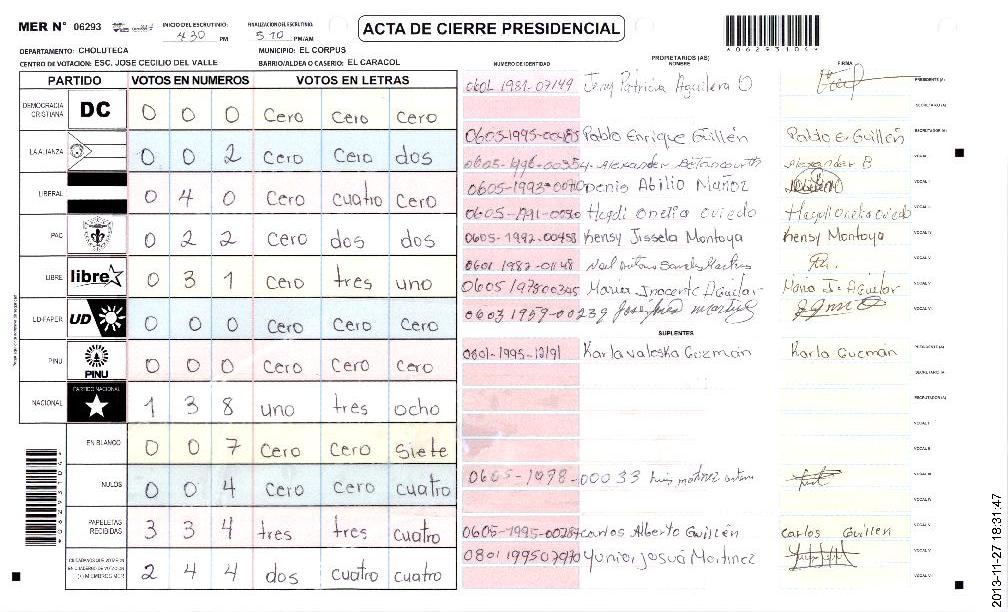 MER Nº 06293 INICIO DEL ESCRUTINIO: 4 30 PM FINALIZACION DEL ESCRUTINIO: 5 10 PM/AM
ACTA DE CIERRE PRESIDENCIAL
06293104
DEPARTAMENTO: CHOLUTECA MUNICIPIO: EL CORPUS
CENTRO DE VOTACION: ESC. JOSE CECILIO DEL VALLE BARRIO/ALDEA O CASERIO: EL CARACOL
PARTIDO VOTOS EN NUMEROS VOTOS EN LETRAS
DEMOCRACIA CRISTIANA DC 0 0 0 Cero Cero Cero
LA ALIANZA 0 0 2 Cero Cero dos
LIBERAL 0 4 0 Cero cuatro Cero
PAC 0 2 2 Cero dos dos
LIBRE libre 0 3 1 Cero tres uno
UD/FAPER UD 0 0 0 Cero Cero Cero
PINU PINU 0 0 0 Cero Cero Cero
NACIONAL PARTIDO NACIONAL 1 3 8 uno tres ocho
EN BLANCO 0 0 7 Cero Cero Siete
NULOS 0 0 4 Cero Cero cuatro
PAPELETAS RECIBIDAS 3 3 4 tres tres cuatro
CIUDADANOS QUE VOTARON EN CUADERNO DE VOTACION (+) MIEMBROS MER 2 4 4 dos cuatro cuatro
NUMERO DE IDENTIDAD PROPIETARIOS (AS) NOMBRE FIRMA
0601-1981-07149 Jeny Patricia Aguilera O PRESIDENTE (A)
SECRETARIO (A)
0605-1995-00485 Pablo Enrique Guillén Pablo E. Guillén ESCRUTADOR (A)
0605-1996-00354 Alexander Betancourth Alexander B VOCAL I
0605-1993-0070 Denis Abilio Nuñoz VOCAL II
0605-1991-0050 Haydi Onelia oviedo Haydi Onelia oviedo VOCAL III
0605-1992-00458 Kensy Jissela Montoya Kensy Montoya VOCAL IV
0601 1982-01148 VOCAL V
0605 197800345 Maria Inocente Aguilar Maria I. Aguilar VOCAL VI
0603 1959-00239
SUPLENTES
0801-1995-12191 Karla Valeska Guzmán Karla Guzmán PRESIDENTE (A)
SECRETARIO (A)
ESCRUTADOR (A)
VOCAL I
VOCAL II
0605-1978-00033 Luis Martinez VOCAL III
VOCAL IV
0605-1995-00287 Carlos Alberto Guillén Carlos Guillen VOCAL V
0801199507970 Yunior Josué Martinez VOCAL VI
VOCAL VII
2013-11-27 18:31:47